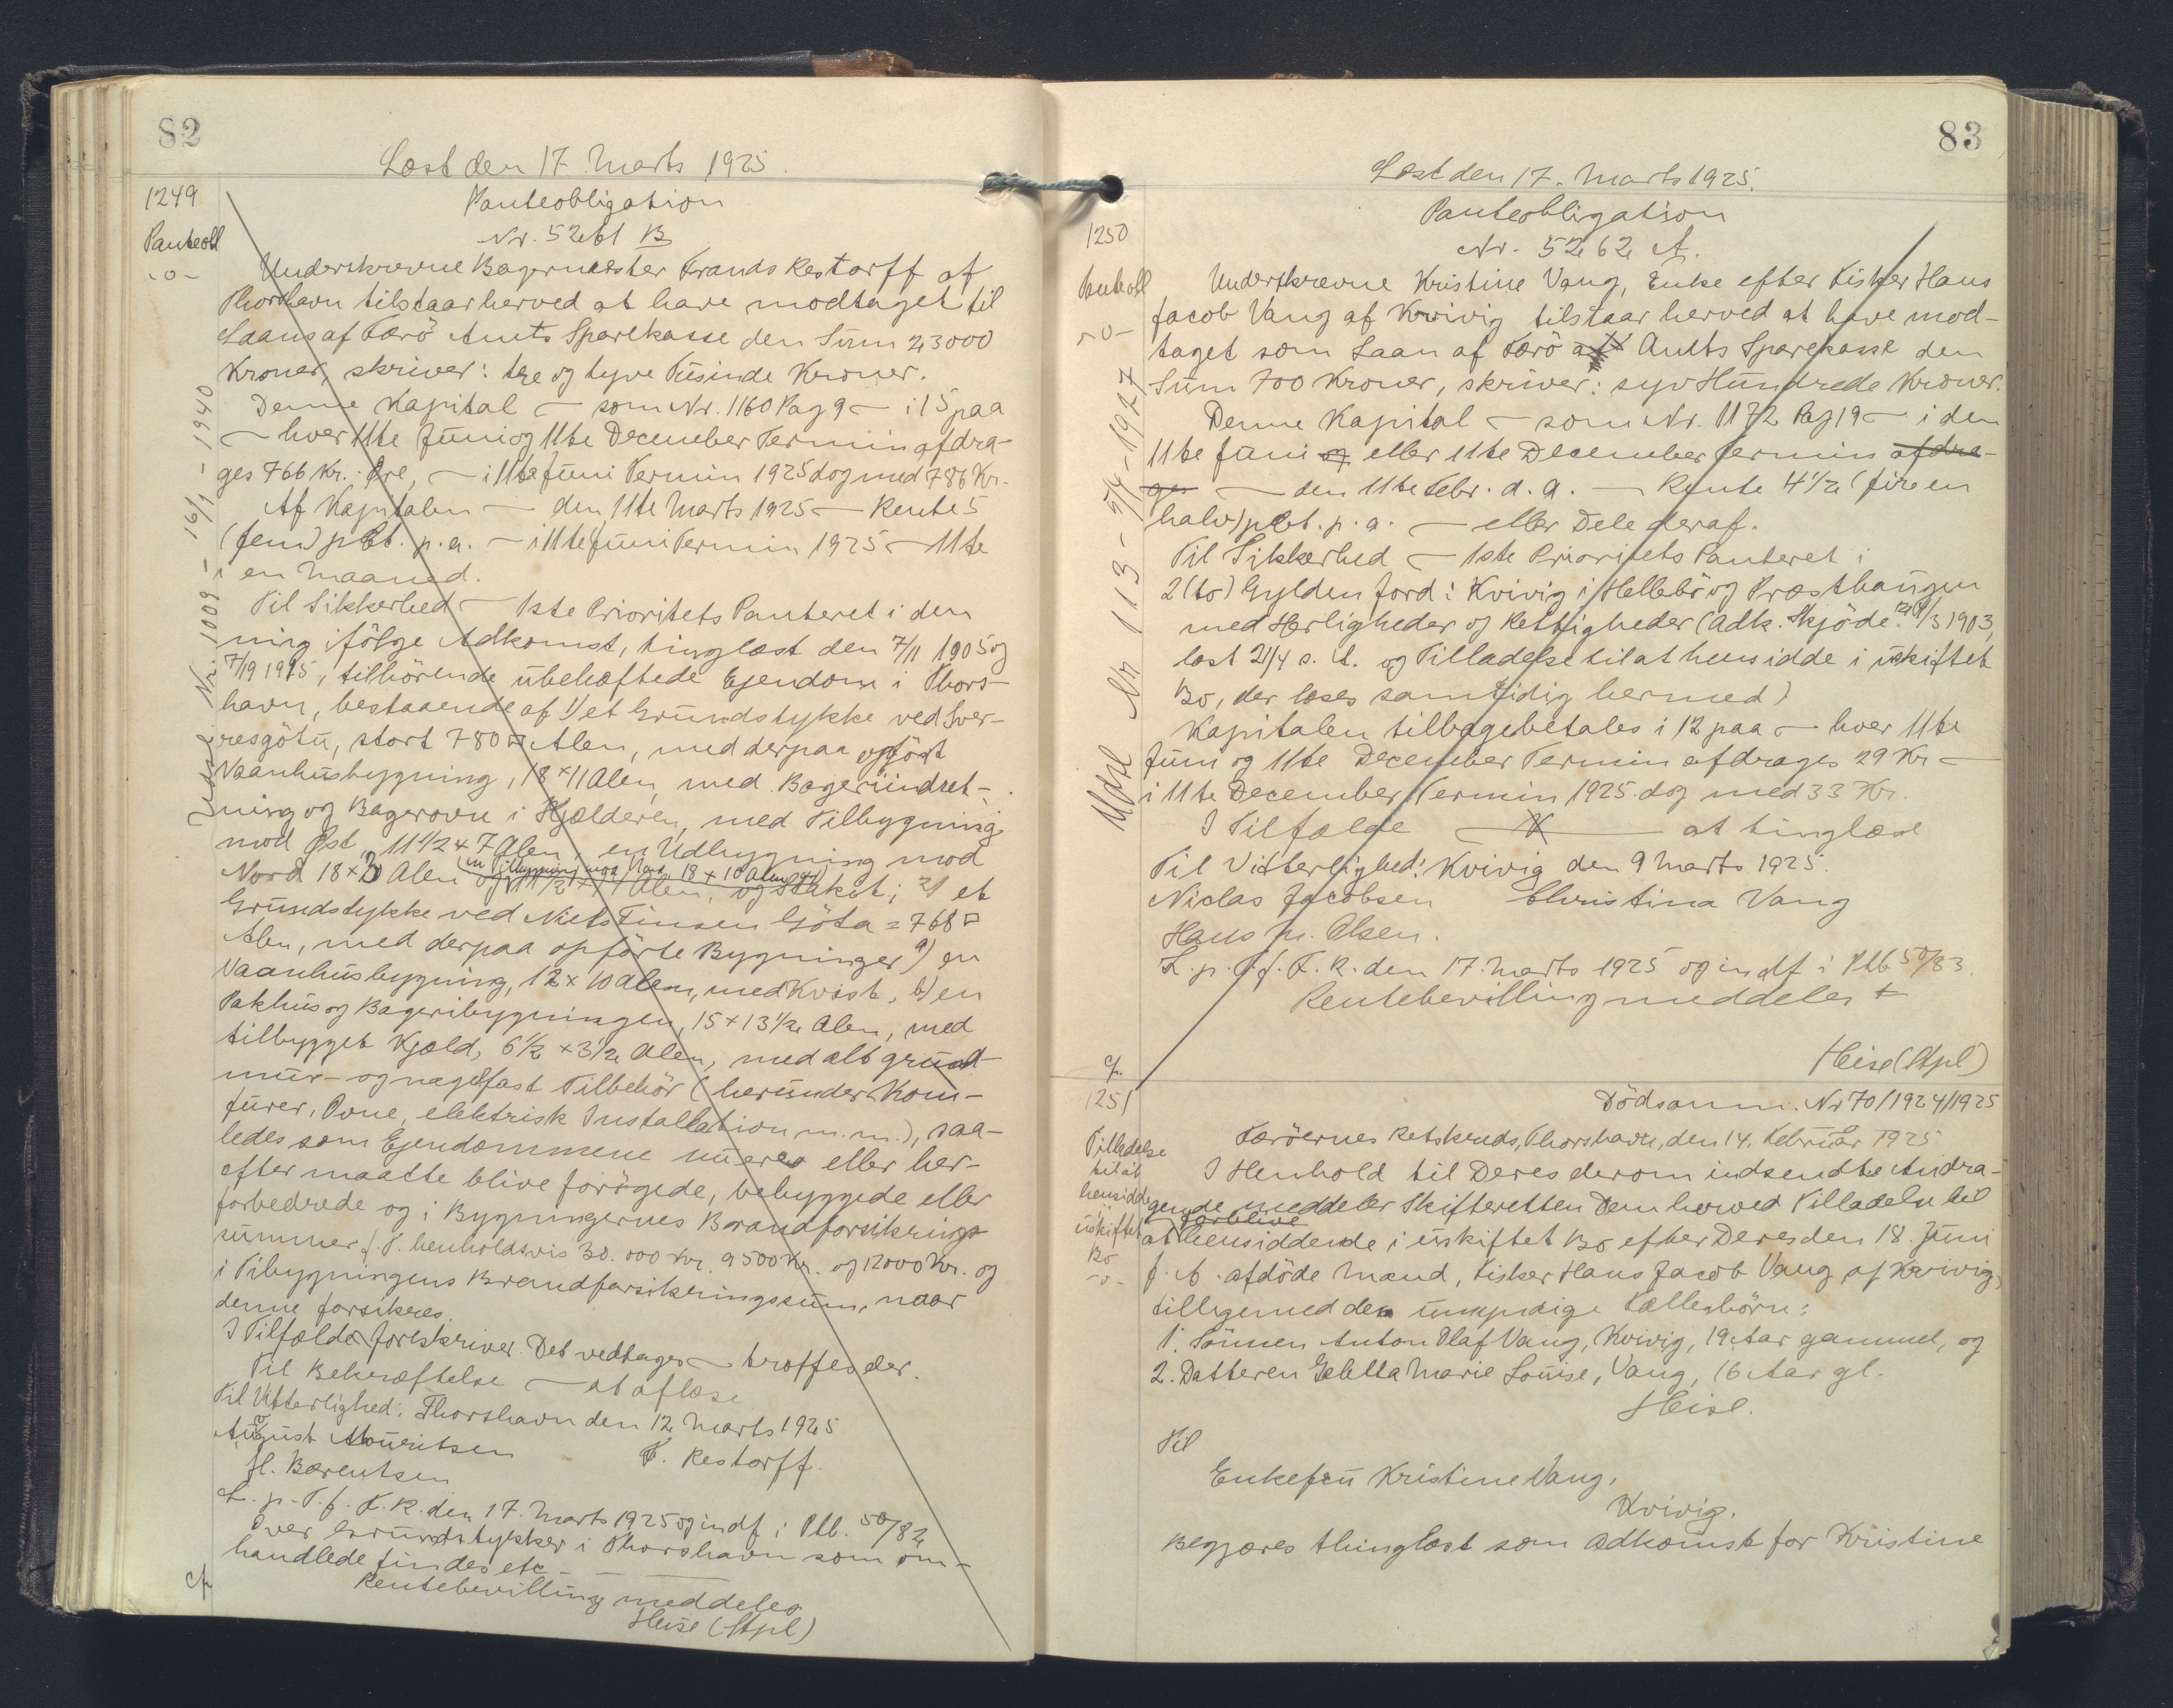 82
Læst den 17 Marts 1925.
1249
Panteobl
-o-
Panteobligation
Nr. 5261 B
Underskrevne Bagermester Frands Restorff af
Thorshavn tilstaar herved at have modtaget til
Laans af Færö Amts Sparekasse den Sum 23000
Kroner, skriver: tre og tyve Tusinde Kroner.
Denne Kapital — som Nr. 1160 Pag 9 — i 15 paa
— hver 11te Juni og 11te December Termin afdra-
ges 766 Kr. Øre, — i 11te Juni Termin 1925 dog med 786 Kr.
Af Kapitalen — den 11te Marts 1925 — Rente 5
(fem) pCt. p.a. — i 11te Juni Termin 1925 — 11te
i en Maaned.
Til Sikkerhed — 1ste Prioritets Panteret i den
mig ifölge Adkomst, tinglæst den 7/11 1905 og
7/19 1915, tilhörende ubehæftede Ejendom i Thors-
havn, bestaaende af 1) et Grundstykke ved Sver-
resgötu, stort 780 □ Alen, med derpaa opfört
Vaanhusbygning, 18 × 11 Alen, med Bageriindret-
ning og Bagerovn i Kjælderen, med Tilbygning
mod Øst, 11 1/2 × 7 Alen, en Udbygning mod
(en Tilbygning mod Nord 18 × 10 Alen)
Nord 18 × 3 Alen og 11 1/2 × 4 Alen, og Stakit; 2) et
Grundstykke ved Niels Finsen Göta = 768 □
Alen, med derpaa opförte Bygninger a) en
Vaanhusbygning, 12 × 10 Alen, med Kvist, b) en
Pakhus og Bageribygningen, 15 × 13 1/2 Alen, med
tilbygget Kjæld, 6 1/2 × 3 1/2 Alen, med alt grund-
mur- og nagelfast Tilbehör (herunder Kom-
furer, Ovne, elektrisk Installation m.m.), saa-
ledes som Ejendommene nu eres eller her-
efter maatte blive forögede, bebyggede eller
forbedrede og i Bygningernes Brandforsikrings
summer f. T. henholdsvis 30.000 Kr. 9500 Kr. og 12000 Kr. og
i Tibygningens Brandforsikringssum, naar
denne forsikres.
I Tilfælde foreskriver. Det vedtages — træffes der.
Til Bekræftelse — at aflæse
Til Vitterlighed: Thorshavn den 12 Marts 1925
August Mouritsen F. Restorff.
H. Bærentsen
L. p. T. f. F. R. den 17. Marts 1925 og indf i Ptb. 50/82
Over Grundstykker i Thorshavn som om-
handlede findes etc
Rentebevilling meddeles
Heise (Stpl)
cf.
Nr. 1009 - 16/1 - 1940
83
Læst den 17. Marts 1925.
1250
Panteobl
-o-
Panteobligation
Nr. 5262 A.
Underskrevne Kristine Vang, Enke efter Fisker Hans
Jacob Vang af Kvivig tilstaar herved at have mod-
taget som Laan af Færö Amts Sparekasse den
Sum 700 Kroner, skriver: syv Hundrede Kroner.
Denne Kapital — som Nr. 1172 Pag 19 — i den
11te Juni og eller 11te December Termin afdra-
ges — den 11te Febr. d. A. — Rente 4 1/2 (fire en
halv) pCt. p. a. — eller Dele deraf.
Til Sikkerhed — 1ste Prioritets Panteret i
2 (to) Gylden Jord i Kvivig i Hellebö og Præsthaugen
med Herligheder og Rettigheder (Adk. Skjöde 12/3 1903,
læst 21/4 s. A. og Tilladelse til at hensidde i uskiftet
Bo, der læses samtidig hermed)
Kapitalen tilbagebetales i 12 paa — hver 11te
Juni og 11te December Termin afdrages 29 Kr —
i 11te December Termin 1925 dog med 33 Kr.
I Tilfælde — at tinglæse
Til Vitterlighed: Kvivig den 9 Marts 1925.
Niclas Jacobsen Christina Vang
Hans M. Olsen.
L. p. T. f. F. R. den 17. Marts 1925 og indf i Ptb 50/83.
Rentebevilling meddeles
Heise (Stpl)
cf.
Udsl Nr 113 - 5/4 - 1927
1251
Tilladelse
til at
hensidde
i
uskiftet
Bo
-o-
Dödsanm. Nr 70/1924/1925
Færöernes Retskreds, Thorshavn, den 14. Februar 1925
I Henhold til Deres derom indsendte Andra-
gende meddeler Skifteretten Dem herved Tilladelse til
forblive
at hensiddende i uskiftet Bo efter Deres den 18. Juni
f. A. afdöde Mand, Fisker Hans Jacob Vang af Kvivig,
tilligemed den umyndige Fællesbörn:
1. Sönnen Anton Olaf Vang, Kvivig, 19 Aar gammel, og
2. Datteren Marie Louise, Vang, 16 Aar gl.
Heise.
Til
Enkefru Kristine Vang,
Kvivig.
Begjæres thinglæst som Adkomst for Kristine